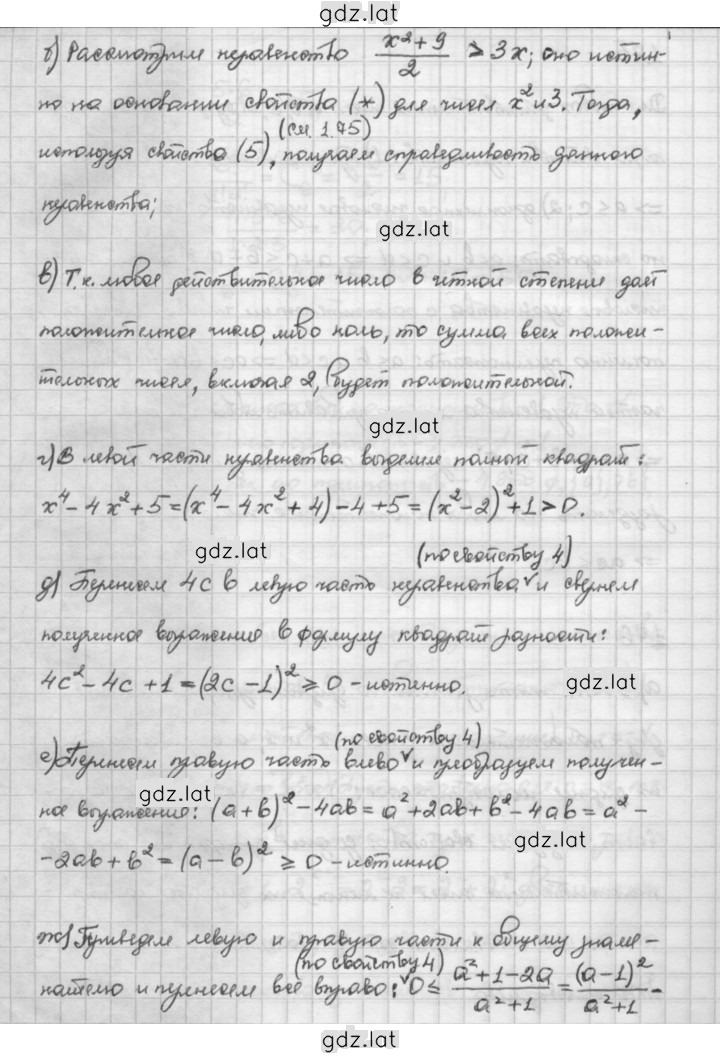 gdz.lat
б) Рассмотрим неравенство (x²+9)/2 ≥ 3x; оно истин-
но на основании свойства (*) для чисел x² и 3. Тогда,
(см. 1.75)
используя свойства (5), получаем справедливость данного
неравенства;
gdz.lat
в) Т.к. любое действительное число в четной степени дает
положительное число, либо ноль, то сумма всех положи-
тельных чисел, включая 2, будет положительной.
gdz.lat
г) В левой части неравенства выделим полный квадрат:
x⁴ - 4x² + 5 = (x⁴ - 4x² + 4) - 4 + 5 = (x² - 2)² + 1 > 0.
gdz.lat
(по свойству 4)
д) Перенесем 4c в левую часть неравенства и свернем
полученное выражение в формулу квадрат разности:
4c² - 4c + 1 = (2c - 1)² ≥ 0 - истинно.
gdz.lat
(по свойству 4)
е) Перенесем правую часть влево и преобразуем получен-
ное выражение: (a + b)² - 4ab = a² + 2ab + b² - 4ab = a² -
gdz.lat
- 2ab + b² = (a - b)² ≥ 0 - истинно.
gdz.lat
ж) Приведем левую и правую части к общему знаме-
(по свойству 4)
нателю и перенесем всё вправо: 0 ≤ (a² + 1 - 2a)/(a² + 1) = (a - 1)²/(a² + 1) -
gdz.lat